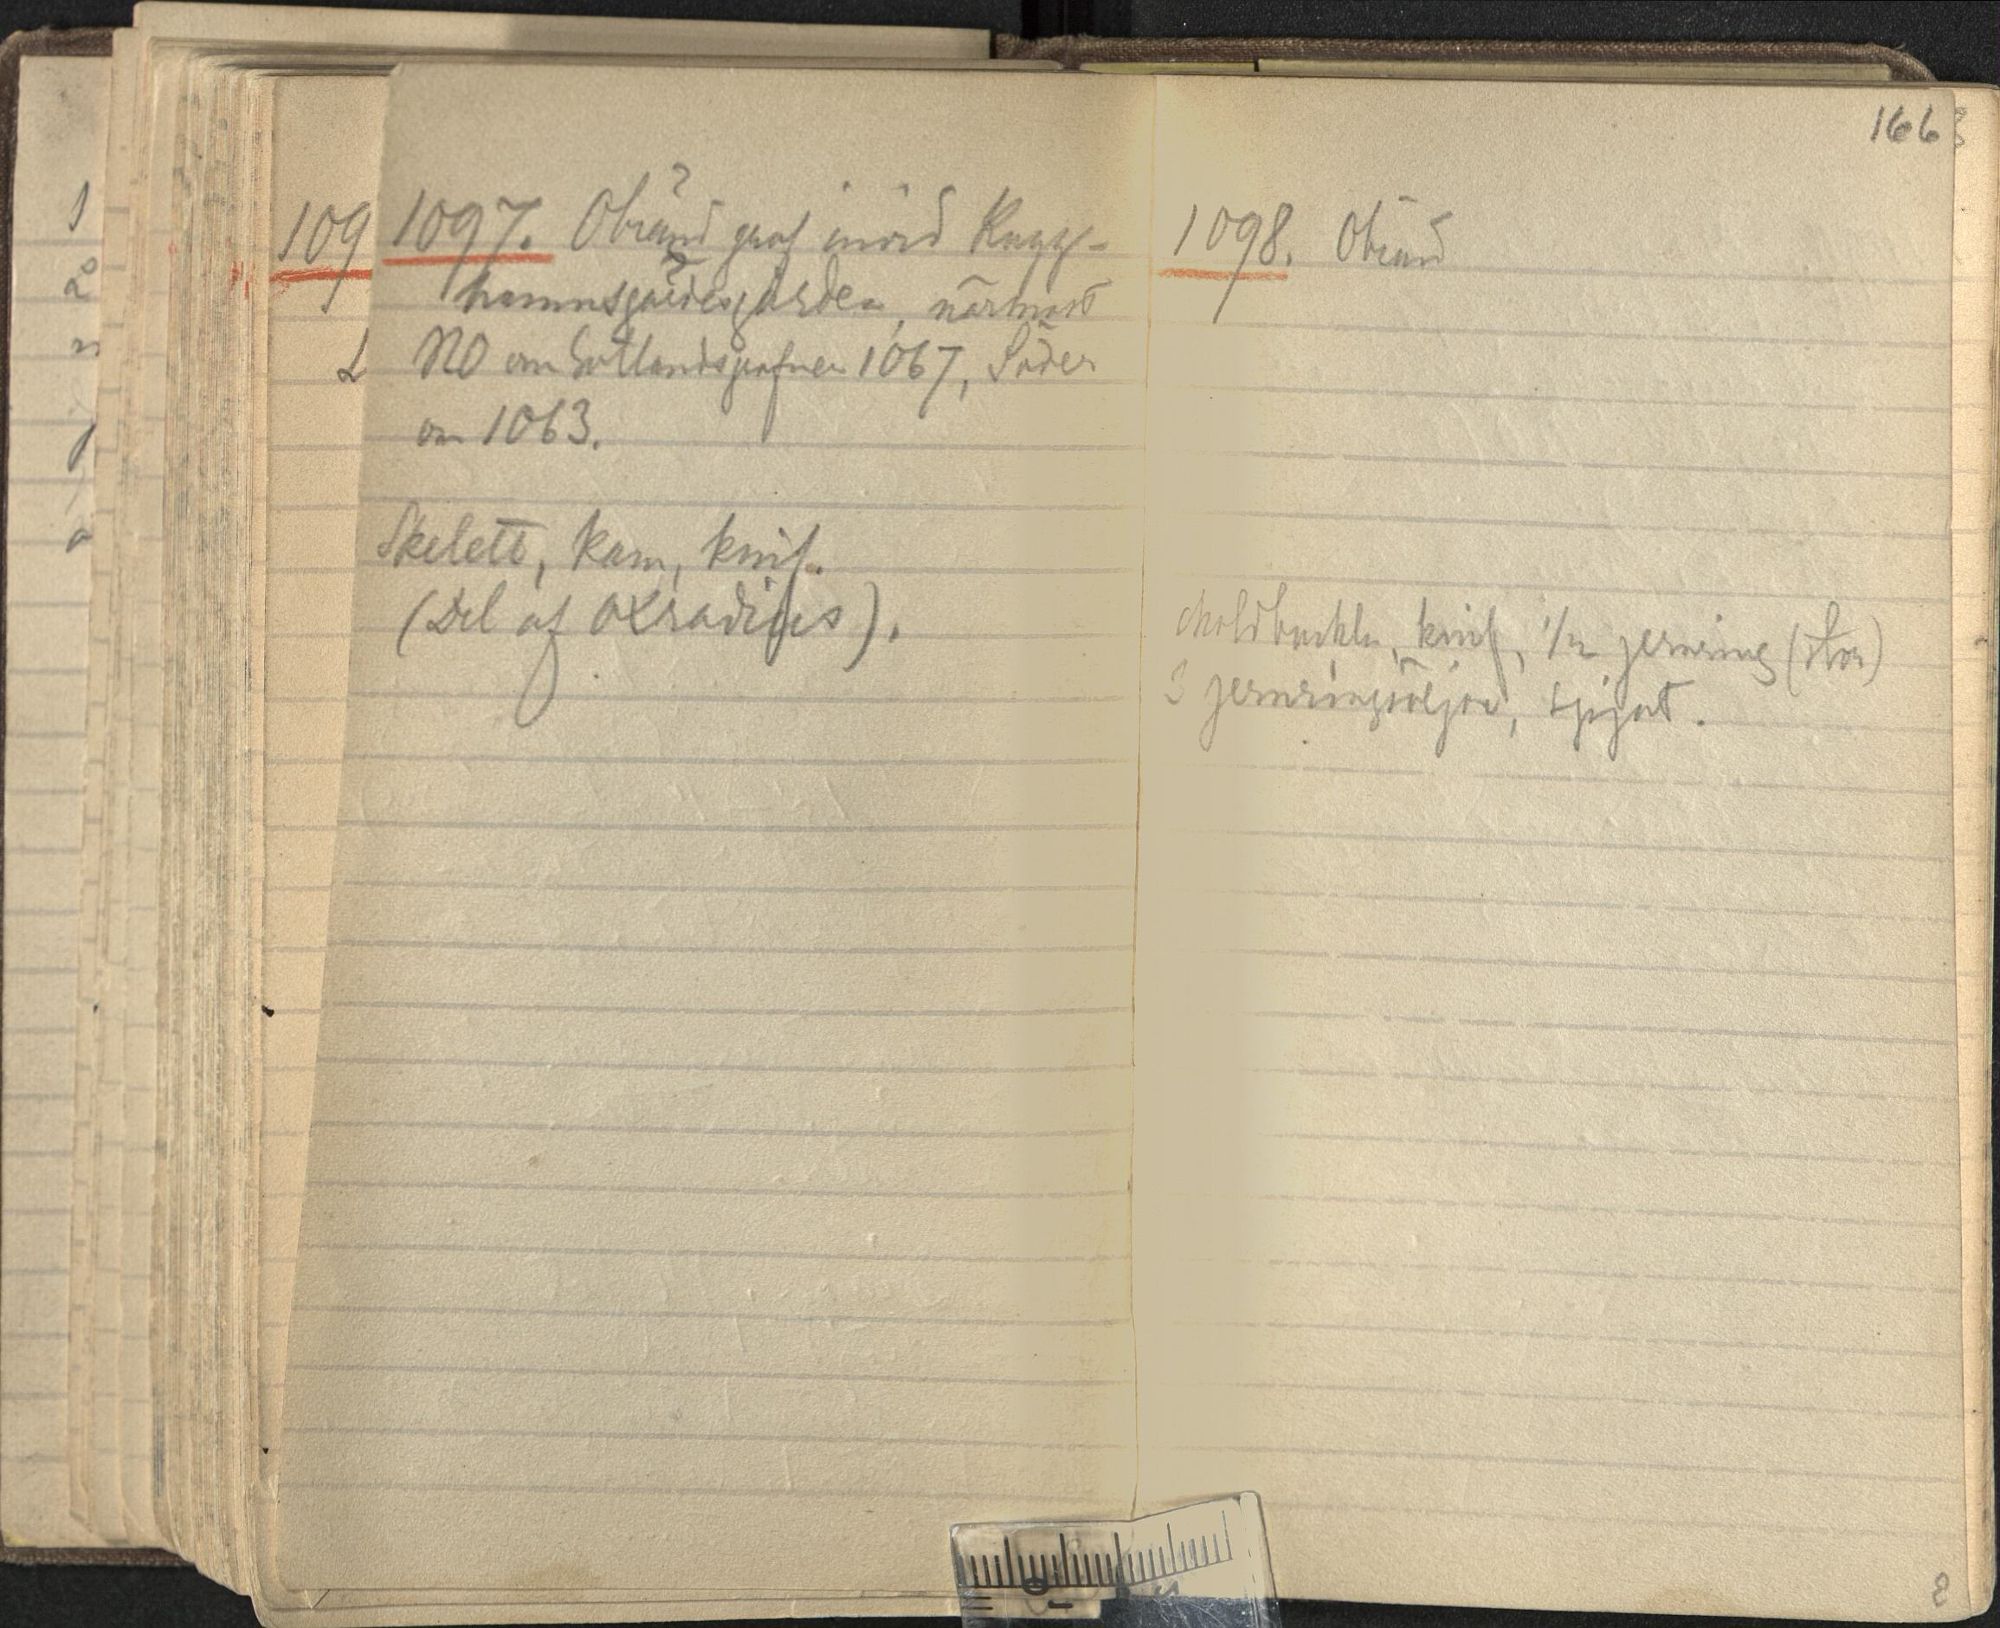 109
1097. Obränd? graf inörd Kopp-
hamnsgärdesgården, närmast
NO om Gotlandsgrafven 1067, Söder
om 1063.
Skelett, kam, knif.
(Del af Oxradius).
166
1098. Obränd
sköldbuckla, knif, 1/2 jernring (stor)
3 jernringsöljor, spjut.
8